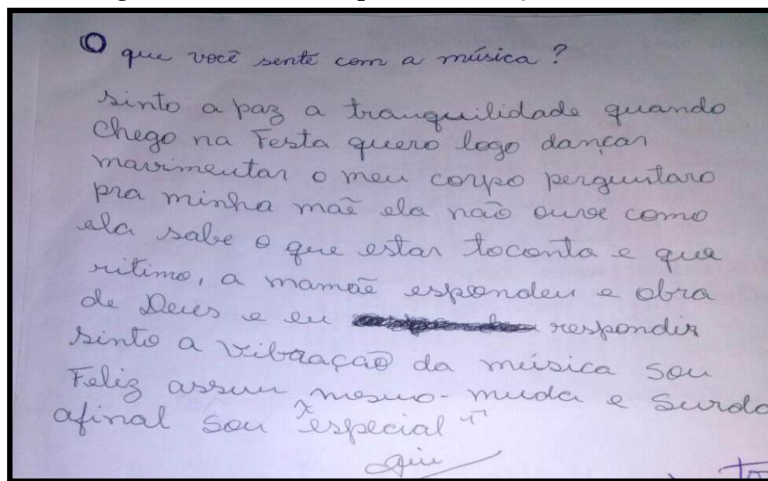 O que você sente com a música?
sinto a paz a tranquilidade quando
chego na Festa quero logo dançar
mavimentar o meu corpo perguntaro
pra minha mãe ela não ouve como
ela sabe o que estar toconta e que
ritimo, a mamãe espondeu e obra
de Deus e eu respondir
sinto a vibração da música sou
Feliz assim mesmo-muda e Surda
afinal sou "especial"